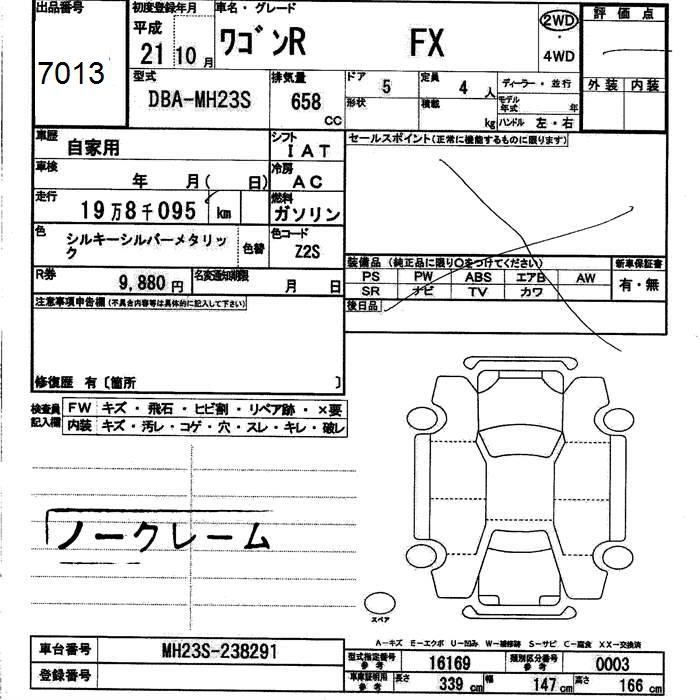 出品番号
7013
初度登録年月
平成
21 10月
車名・グレード
ワゴンR FX
2WD
4WD
評価点
外装 内装
型式
DBA-MH23S
排気量
658
CC
ドア
5
定員
4人
ディーラー・並行
形状
積載
kg
モデル年式
年
ハンドル 左・右
車歴
自家用
シフト
IAT
セールスポイント(正常に機能するものに限ります)
車検
年 月( 日)
冷房
AC
走行
19万8千095 km
燃料
ガソリン
色
シルキーシルバーメタリック
色替
色コード
Z2S
装備品(純正品に限り○をつけてください)
新車保証書
PS PW ABS エアB AW
SR ナビ TV カワ
有・無
R券
9,880円
名変通知期限
月 日
後日品
注意事項申告欄(不具合内容等は具体的に記入して下さい)
修復歴 有〔箇所 〕
検査員記入欄
FW キズ・飛石・ヒビ割・リペア跡・×要
内装 キズ・汚レ・コゲ・穴・スレ・キレ・破レ
ノークレーム
スペア
A-キズ E-エクボ U-凹み W-補修跡 S-サビ C-腐食 XX-交換済
車台番号
MH23S-238291
登録番号
型式指定番号参考
16169
類別区分番号参考
0003
車庫証明用参考
長さ 339 cm
幅 147 cm
高さ 166 cm